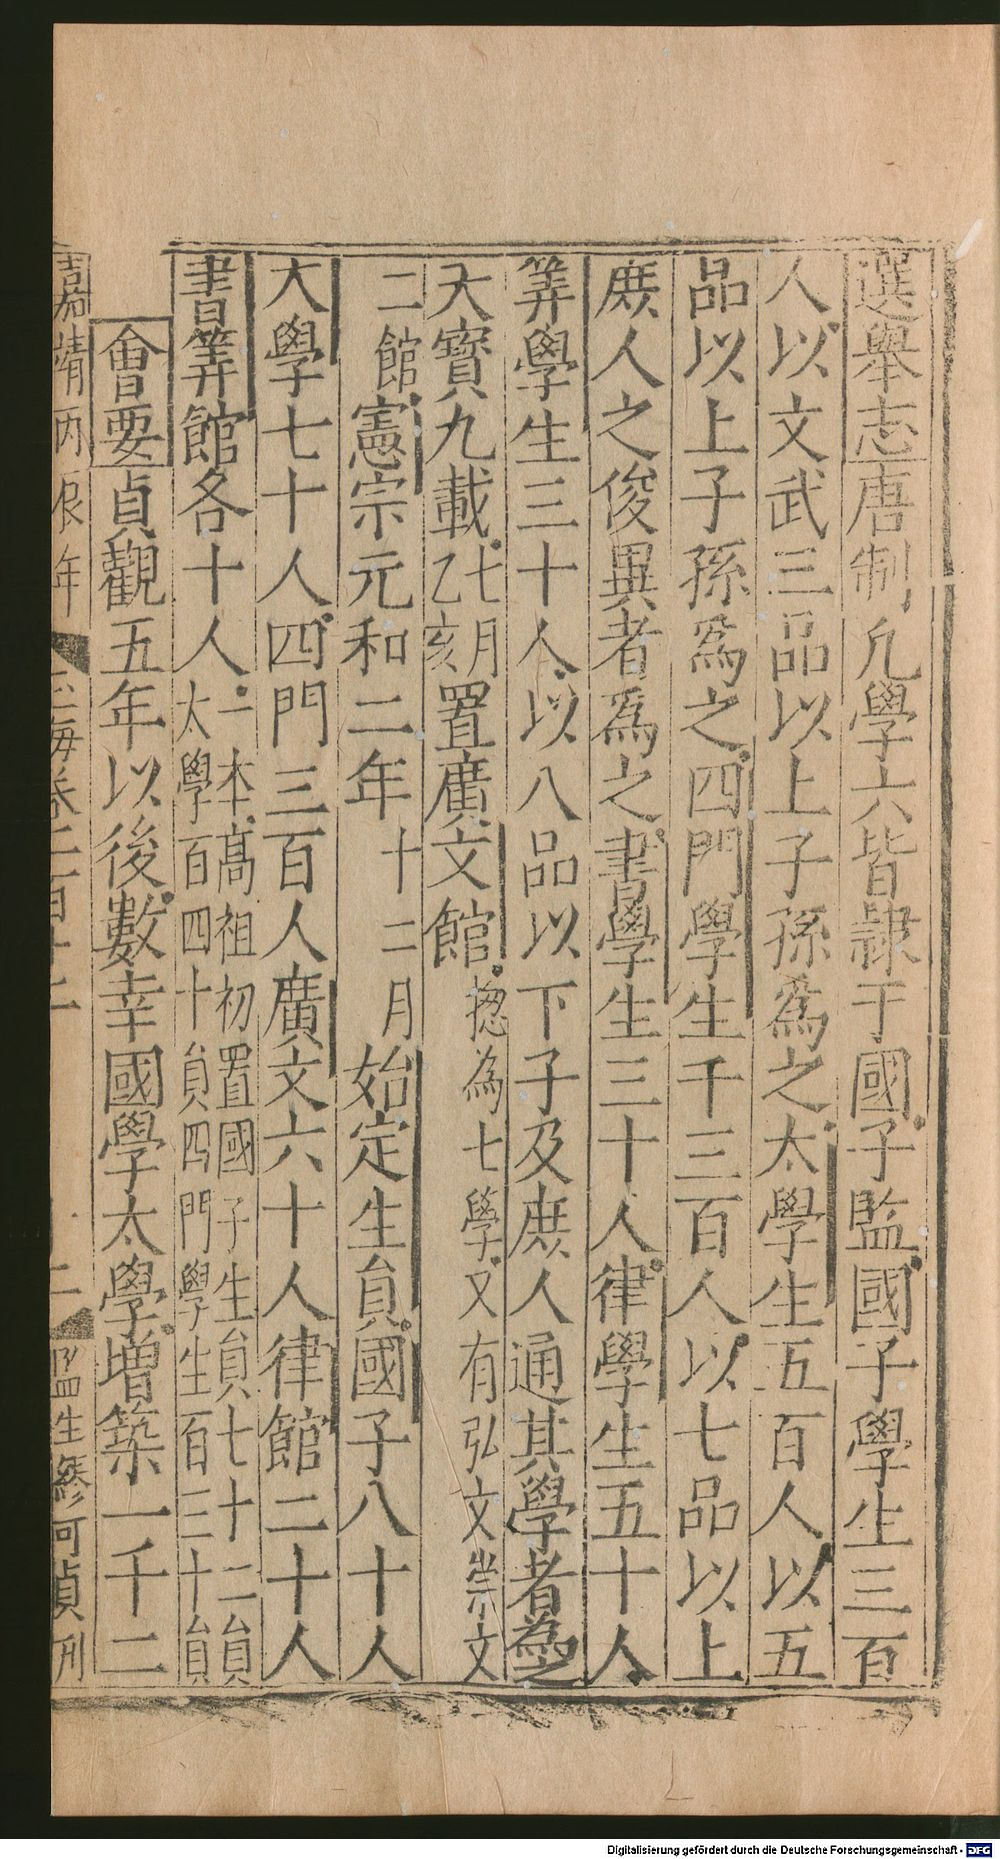 選舉志唐制凡學六皆隷于國子監國子學生三百
人以文武三品以上子孫爲之太學生五百人以五
品以上子孫爲之四門學生千三百人以七品以上
庶人之俊異者爲之書學生三十人律學生五十人
筭學生三十人以八品以下子及庶人通其學者為之
天寳九載七月乙亥置廣文館揔為七學又有弘文崇文
二館憲宗元和二年十二月始定生員國子八十人
大學七十人四門三百人廣文六十人律館二十人
書筭館各十人一本髙祖初置國子生員七十二員
太學百四十員四門學生百三十員
會要貞觀五年以後數幸國學太學增築一千二
嘉靖丙辰年 玉海卷一百十二 十二 監生蔡可貞刊
Digitalisierung gefördert durch die Deutsche Forschungsgemeinschaft - DFG